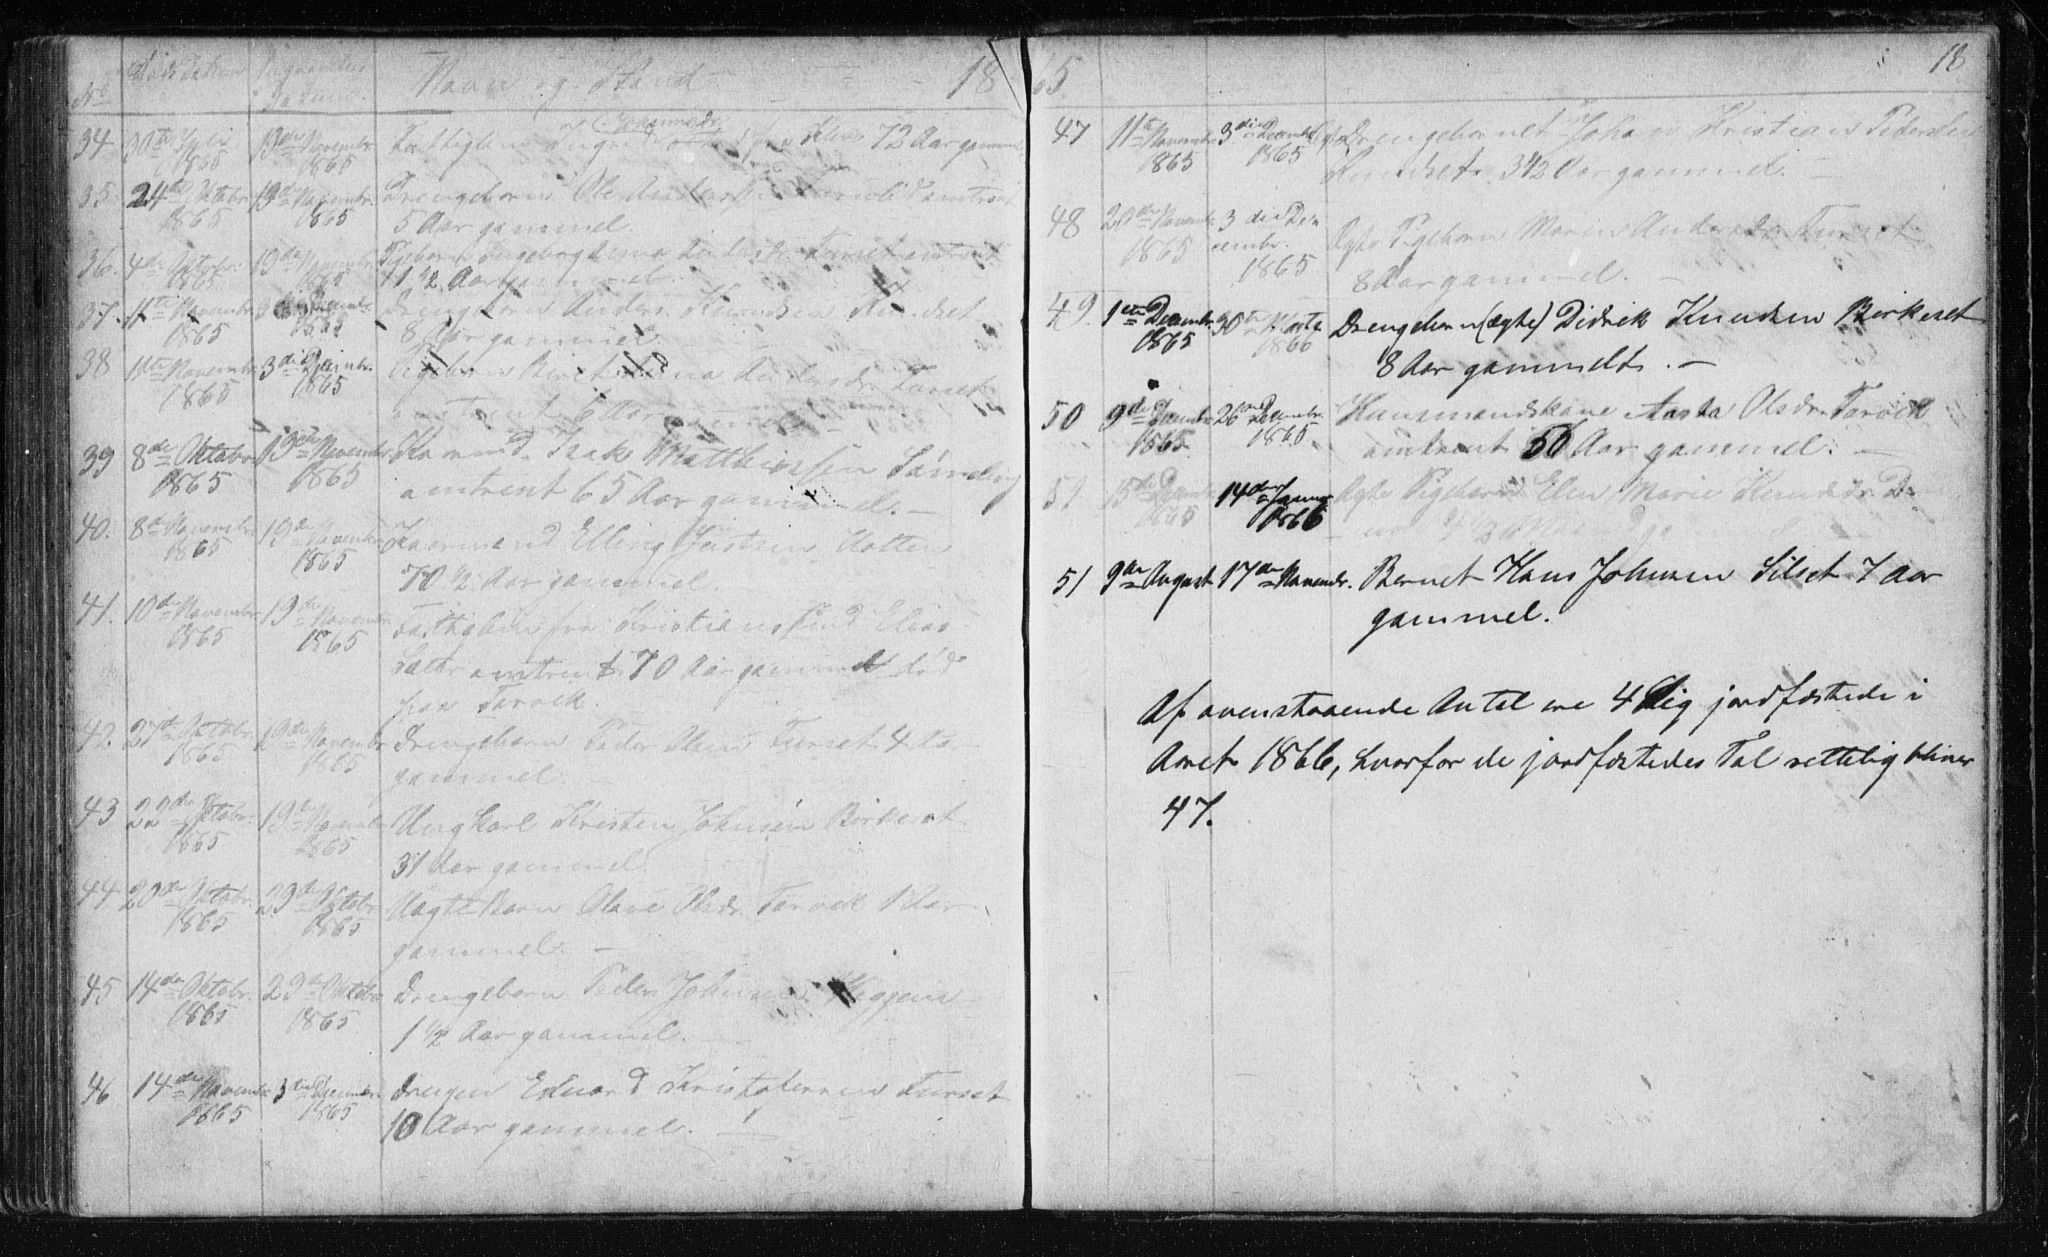 No Døds Datum Begravelses Datum Navn og Stand 1865
18
34 30te Juli 1865 19de November 1865 Fattiglem Ingri Johannesdr 72 Aar gammel
35. 24de Oktobr 1865 19de Novembr 1865 Drengebarn Ole Anders omtrent
5 Aar gammel.
36. 4de Oktobr 1865 19de Novembr 1865 Pigebarn Ingeborg Furset omtrent
11 1/2 Aar gammel.
37. 11te Novembr 1865 3die Decembr 1865 Drengebarn Anders Knudsen
8 Aar gammel.
38 11te Novembr 1865 3die Decembr. 1865 Pigebarn Beret Andersdr Furset
omtrent 6 Aar gammel
39 8de Oktobr 1865 19de Novembr 1865 Kaarmand Isak Matthiessen
omtrent 65 Aar gammel. —
40. 8de Novembr 1865 19de Novembr 1865 Kaarmand Elling Hotten
70 1/2 Aar gammel.
41. 10de Novembr 1865 19de Novembr 1865 Fattiglem fra Kristiansund Elias
Sæter omtrent 70 Aar gammel død
paa Torvik.
42. 27de Oktobr 1865 19de Novembr 1865 Drengebarn Peder Olsen Furset 4 Aar
gammel.
43 22de Oktobr. 1865 19de Novembr 1865 Ungkarl Kristen Johnsen Birkeset
31 Aar gammel
44 20de Oktobr. 1865 29de Oktobr 1865 Uægte Barn Olave Olsdr. Torvik 1 Aar
gammel. —
45 14de Oktobr. 1865 29de Oktobr 1865 Drengebarn Peder Johnsen
1 1/2 Aar gammel.
46 14de Novembr 1865 3die Decembr. 1865 Drengen Edvard Kristofersen Furset
10 Aar gammel. —
47 11te Novembr 1865 3die Decembr 1865 Ægte Drengebarnet Johan Kristian Pedersen
3 1/2 Aar gammel. —
48 20de Novembr 1865 3die December. 1865 Ægte Pigebarn Maren Andersdr Furset
8 Aar gammel. —
49. 1ste Decembr. 1865 30te Marts 1866 Drengebarn (ægte) Didrik Knudsen Birkeset
8 Aar gammelt. —
50 9de Decembr 1865. 26de Decembr. 1865 Huusmandskone Aasta Olsdr. Torvik
omtrent 56 Aar gammel. —
51 15de Decembr 1865 14de Januar 1866 Ægte Pigebarn Elen Marie Knudsdr.
gammel
51 9de August 17de Novembr. Barnet Hans Johnsen Silset 7 Aar
gammel.
Af ovenstaaende Antal ere 4 Lig jordfæstede i
Aaret 1866, hvorfor de jordfæstedes Tal rettelig bliver
47.